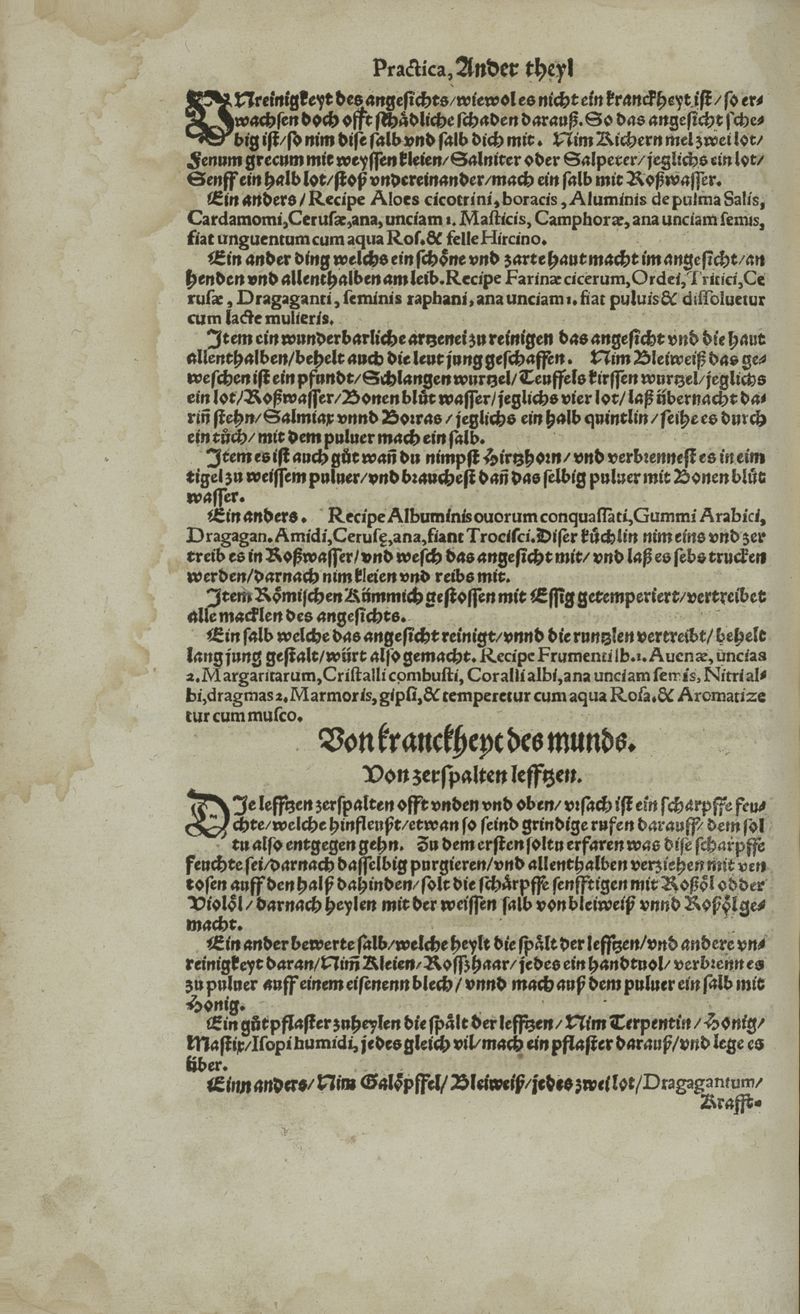 Practica, Ander theyl
VNreinigkeyt des angesichts/wiewol es nicht ein kranckheyt ist/so er⸗
wachsen doch offt schädliche schaden darauß. So das angesicht sche⸗
big ist/so nim dise salb vnd salb dich mit. Nim Kichern mel zwei lot/
Fenum grecum mit weyssen kleien/Salniter oder Salpeter/jeglichs ein lot/
Senff ein halb lot/stoß vndereinander/mach ein salb mit Roßwasser.
Ein anders/Recipe Aloes cicotrini, boracis, Aluminis de pulma Salis,
Cardamomi, Cerusæ, ana, unciam 1. Masticis, Camphoræ, ana unciam semis,
fiat unguentum cum aqua Ros. & felle Hircino.
Ein ander ding welchs ein schöne vnd zarte haut macht im angesicht/an
henden vnd allenthalben am leib. Recipe Farinæ cicerum, Ordei, Tritici, Ce
rusæ, Dragaganti, seminis raphani, ana unciam 1. fiat puluis & dissoluetur
cum lacte mulieris.
Item ein wunderbarliche artzenei zu reinigen das angesicht vnd die haut
allenthalben/behelt auch die leut jung geschaffen. Nim Bleiweiß das ge⸗
weschen ist ein pfundt/Schlangen wurtzel/Teuffels kirssen wurtzel/jeglichs
ein lot/Roßwasser/Bonen blůt wasser/jeglichs vier lot/laß übernacht da⸗
rin̄ stehn/Salmiax vnnd Borras/jeglichs ein halb quintlin/seihe es durch
ein tůch/mit dem puluer mach ein salb.
Item es ist auch gůt wan̄ du nimpst Hirtzhorn/vnd verbrennest es in eim
tigel zu weissem puluer/vnd brauchest dan̄ das selbig puluer mit Bonen blůt
wasser.
Ein anders. Recipe Albuminis ouorum conquassati, Gummi Arabici,
Dragagan. Amidi, Cerusę, ana, fiant Trocisci. Diser kůchlin nim eins vnd zer
treib es in Roßwasser/vnd wesch das angesicht mit/vnd laß es sebs trucken
werden/darnach nim kleien vnd reibs mit.
Item Römischen Kümmich gestossen mit Essig getemperiert/vertreibet
alle macklen des angesichts.
Ein salb welche das angesicht reinigt/vnnd die runtzlen vertreibt/behelt
lang jung gestalt/würt also gemacht. Recipe Frumenti lb. 1. Auenæ, uncias
2. Margaritarum, Cristalli combusti, Coralli albi, ana unciam semis, Nitri al⸗
bi, dragmas 2. Marmoris, gipsi, & temperetur cum aqua Rosa. & Aromatize
tur cum musco.
Von kranckheyt des munds.
Von zerspalten lefftzen.
DIe lefftzen zerspalten offt vnden vnd oben/vrsach ist ein scharpffe feu⸗
chte/welche hinfleußt/etwan so seind grindige rufen darauff/dem sol
tu also entgegen gehn. Zu dem ersten soltu erfaren was dise scharpffe
feuchte sei/darnach dasselbig purgieren/vnd allenthalben verziehen mit ven
tosen auff den halß dahinden/solt die schärpffe senfftigen mit Roßöl odder
Violöl/darnach heylen mit der weissen salb von bleiweiß vnnd Roßöl ge⸗
macht.
Ein ander bewerte salb/welche heylt die spält der lefftzen/vnd andere vn⸗
reinigkeyt daran/Nim̄ Kleien/Rosszhaar/jedes ein handtuol/verbrenn es
zu puluer auff einem eisenenn blech/vnnd mach auß dem puluer ein salb mit
Honig.
Ein gůt pflaster zuheylen die spält der lefftzen/Nim Terpentin/Honig/
Mastix/Isopi humidi, jedes gleich vil/mach ein pflaster darauß/vnd lege es
über.
Einn anders/Nim Galöpffel/Bleiweiß/jedes zwei lot/Dragagantum/
Krafft⸗